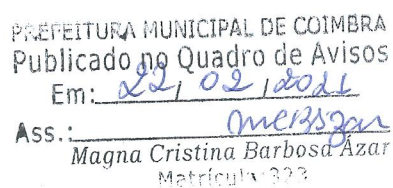 PREFEITURA MUNICIPAL DE COIMBRA
Publicado no Quadro de Avisos
Em: 22 / 02 / 2021
Ass.:
Magna Cristina Barbosa Azar
Matrícula 323